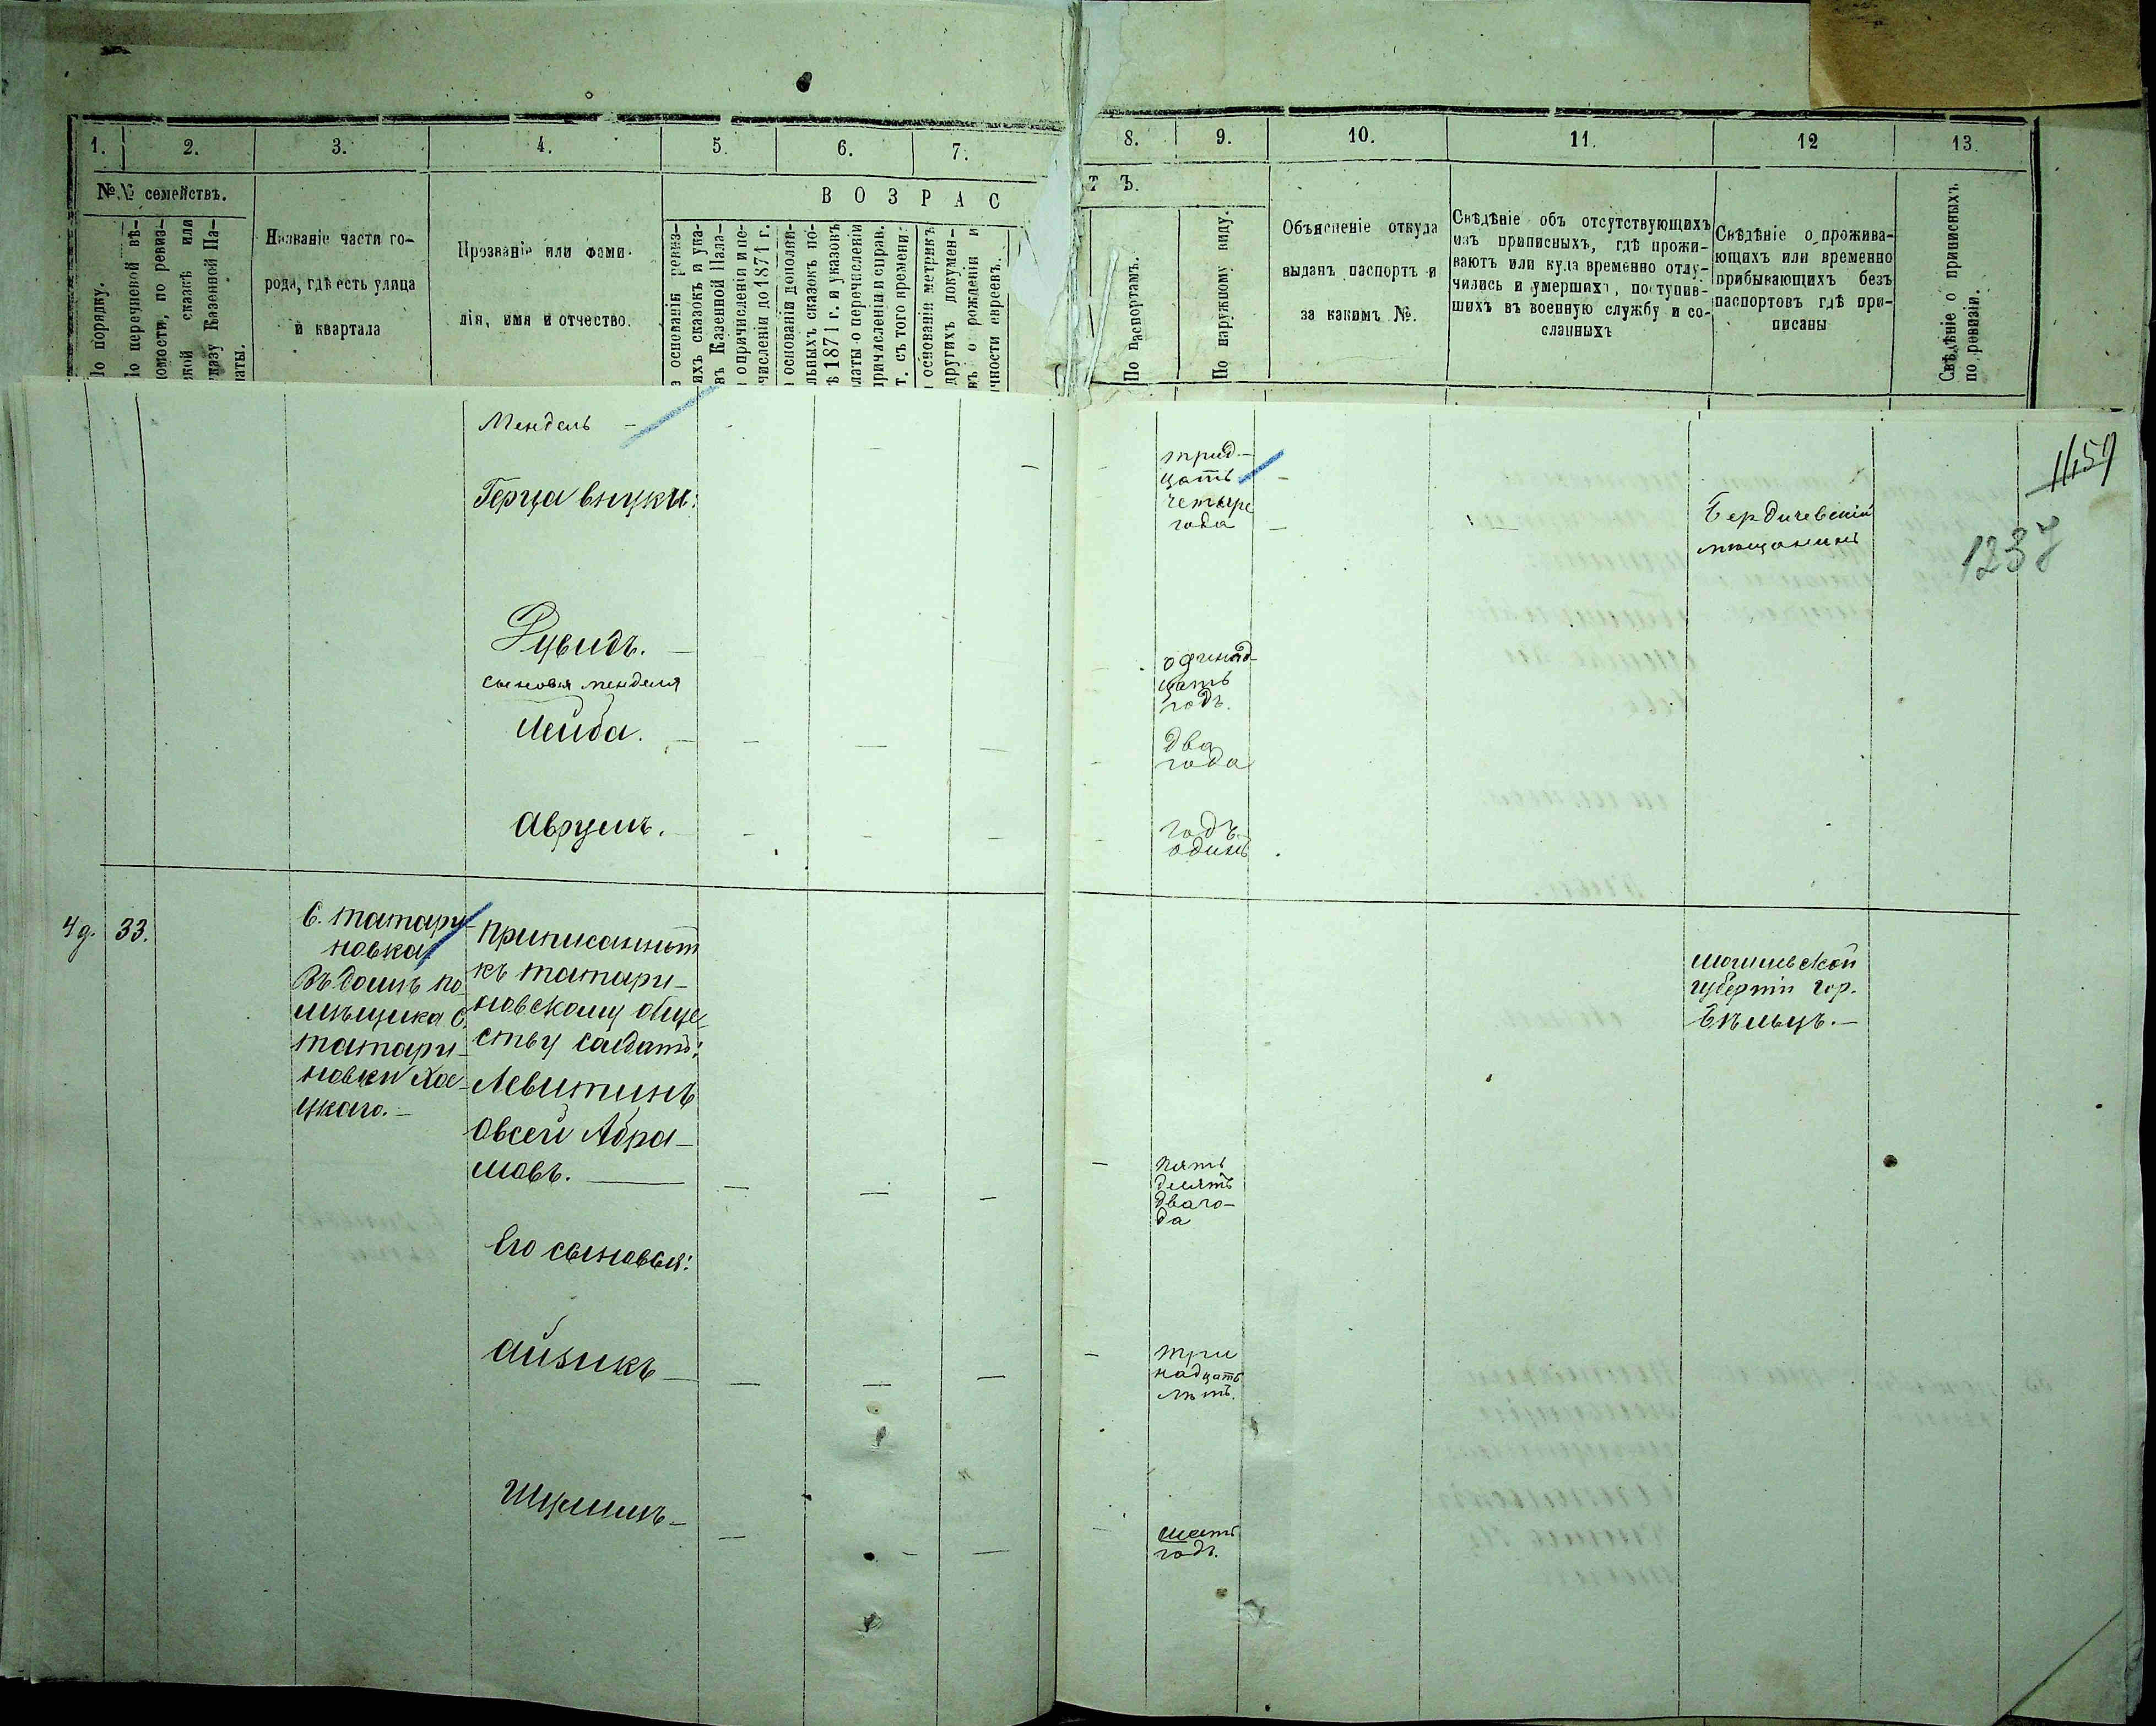 1. 2. 3. 4. 5. 6. 7. 8. 9. 10. 11. 12 13.
№№ семействъ.
По порядку.
По перечневой вѣ-
домости, по ревиз-
ской сказкѣ или
указу Казенной Па-
латы.
Названіе части го-
рода, гдѣ есть улица
и квартала
Прозваніе или фами-
лія, имя и отчество.
ВОЗРАС
ТЪ.
основаніи ревиз-
ихъ сказокъ и ука-
въ Казенной Пала-
опричисленіи и пе-
численіи до 1871 г.
основаніи дополни-
льныхъ сказокъ по-
ѣ 1871 г. и указовъ
латы о перечисленіи
причисленіи и справ.
т. съ того времени:
основаніи метрикъ
другихъ докумен-
въ о рожденіи и
чности евреевъ.
По паспортамъ.
По наружному виду.
Объясненіе откуда
выданъ паспортъ и
за какимъ №.
Свѣдѣніе объ отсутствующихъ
изъ приписныхъ, гдѣ прожи-
ваютъ или куда временно отлу-
чились и умершихъ, поступив-
шихъ въ военную службу и со-
сланныхъ
Свѣдѣніе о прожива-
ющихъ или временно
прибывающихъ безъ
паспортовъ гдѣ при-
писаны
Свѣдѣніе о приписныхъ
по ревизіи.
Мендель -
трид-
цать
четыре
года
Герца внуки:
Бердичевскій
мѣщанинъ
1159
1237
Дувидъ. -
одинад-
цать
годъ.
сыновья менделя
Лейба. -
два
года
Аврумъ. -
годъ
одинъ
33.
С. Татари-
новка
Въ домѣ по-
мѣщика С.
Татари-
новки
цкаго. -
Приписанный
къ Татари-
новскому обще-
ству солдатъ:
Левитинъ
Овсей Абра-
мовъ.
пять
десятъ
два го-
да
Могилевской
губерніи гор.
Его сыновья:
Айзикъ -
три
надцать
лѣтъ.
Шулимъ -
шесть
годъ.